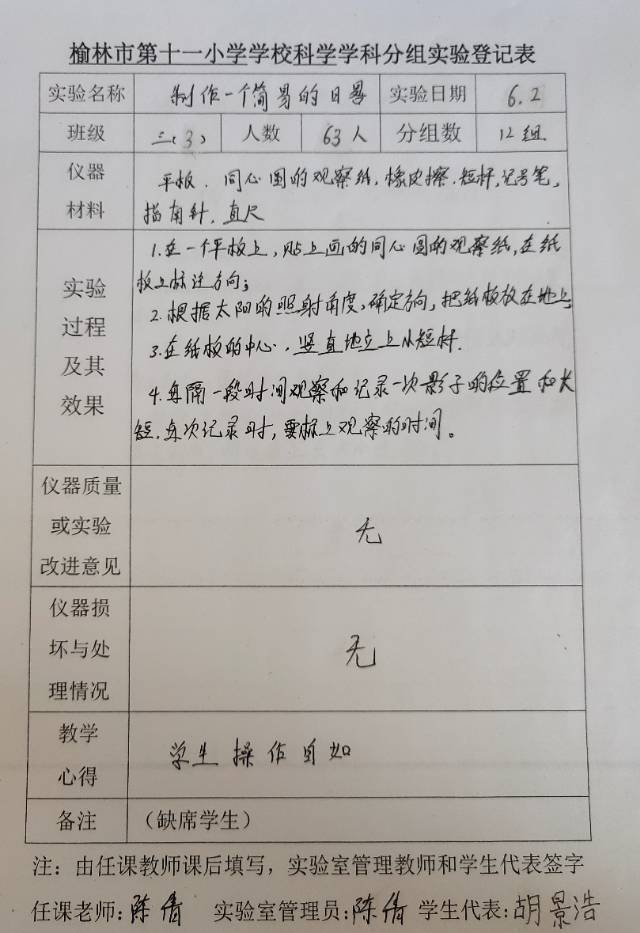 榆林市第十一小学学校科学学科分组实验登记表
实验名称 制作一个简易的日晷 实验日期 6.2
班级 三(3) 人数 63人 分组数 12组
仪器材料 平板.同心圆的观察纸.橡皮擦.短杆,记号笔,
指南针.直尺
实验过程及其效果 1.在一个平板上,贴上画的同心圆的观察纸,在纸
板上标注方向;
2.根据太阳的照射角度,确定方向,把纸板放在地上
3.在纸板的中心,竖直地立上小短杆.
4.每隔一段时间观察和记录一次影子的位置和长
短.每次记录时,要标上观察的时间。
仪器质量或实验改进意见 无
仪器损坏与处理情况 无
教学心得 学生操作自如
备注 (缺席学生)
注:由任课教师课后填写,实验室管理教师和学生代表签字
任课老师:陈倩 实验室管理员:陈倩 学生代表:胡景浩